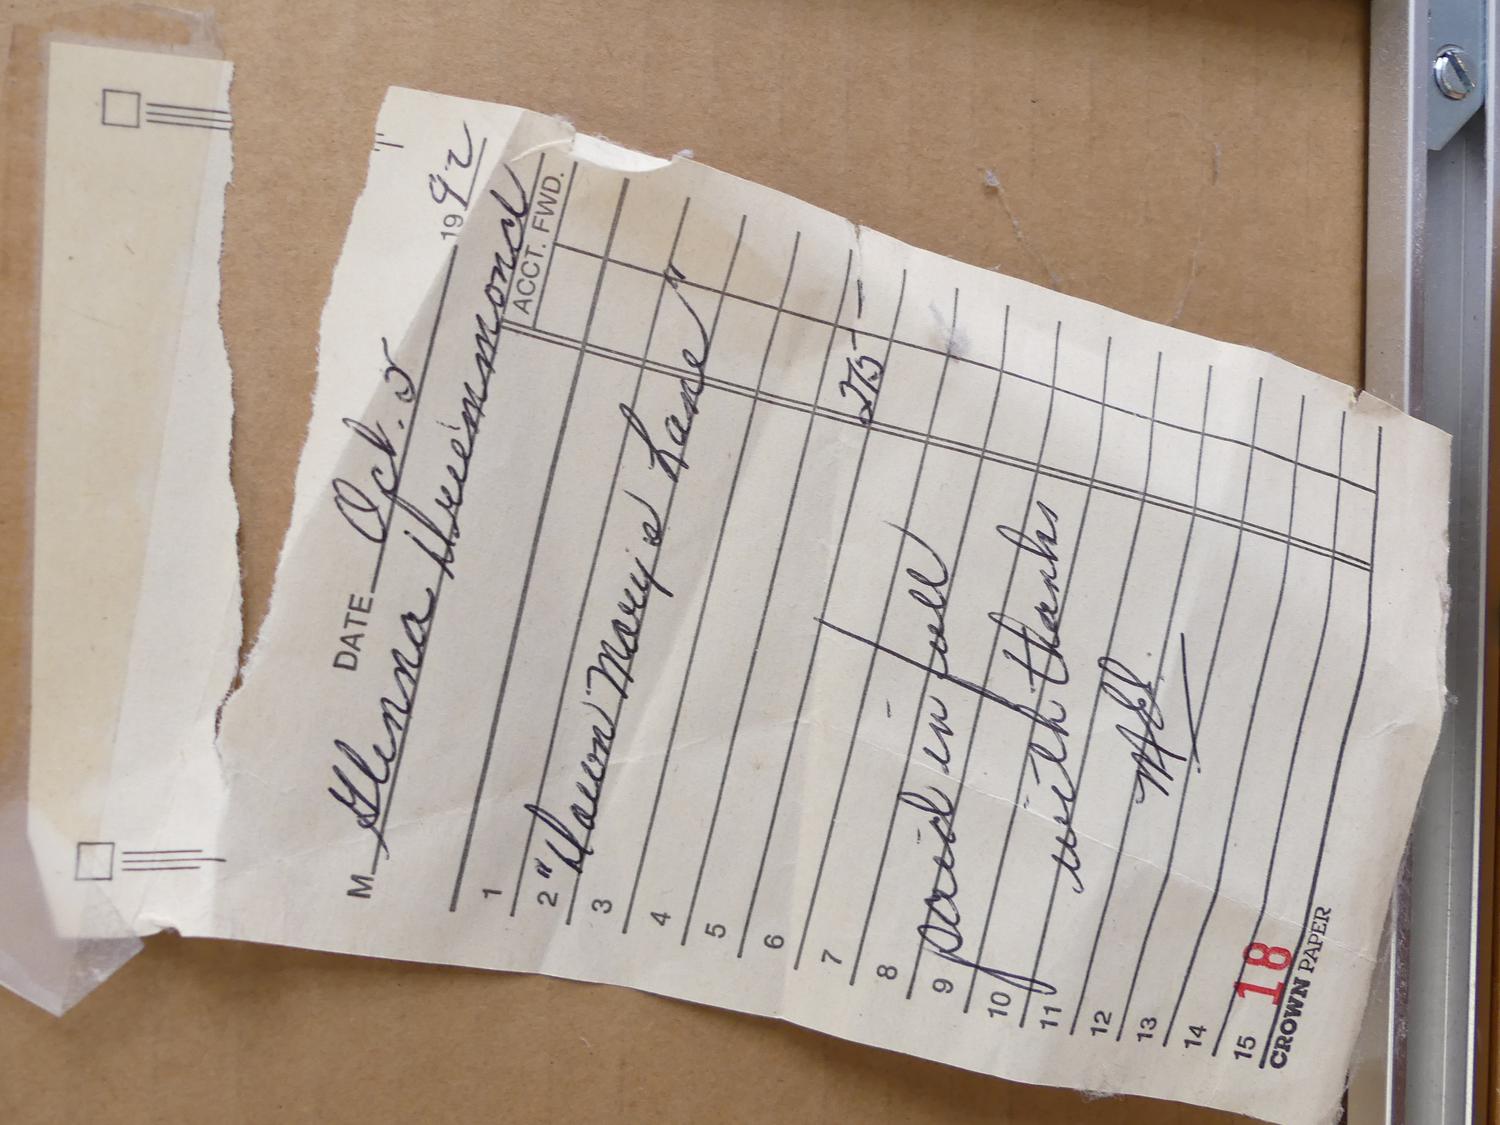 DATE Oct. 5 1992
M Glenna Drummond
ACCT. FWD.
1
2 "Down Mary's Lane"
3
4
5
6
7 275 —
8
9 paid in full
10
11 with thanks
12
13
14
15
18
CROWN PAPER